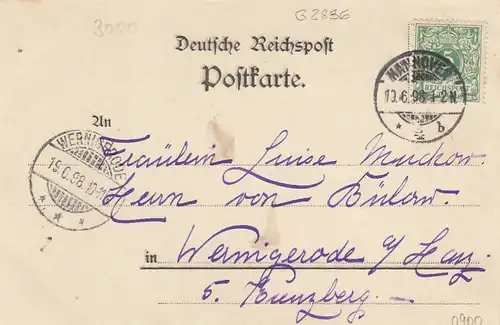 G2896
3000
Deutsche Reichspost
Postkarte.
REICHSPOST
HANNOVER
19.6.98.1-2N.
* b
An
Fräulein Luise Muckow.
WERNIGERODE
19.6.98.10-11
* * *
Herrn von Bülow.
in Wernigerode a/Harz
5. Kunzberg.
0900